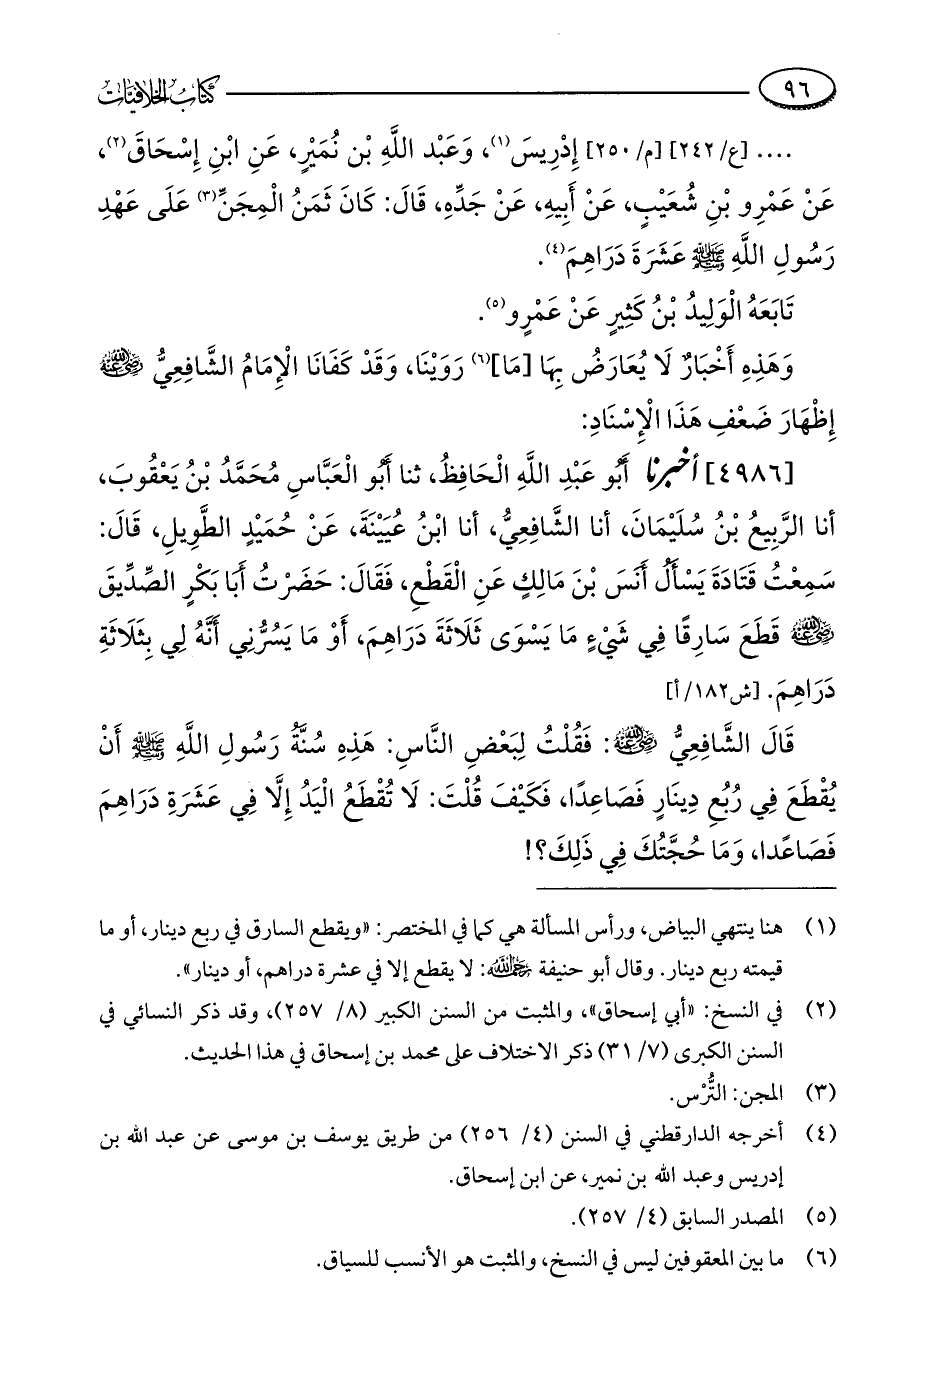 ٩٦ كتاب الخلافيات
.... [ع/ ٢٤٢] [م/ ٢٥٠] إِدْرِيسَ(١)، وَعَبْد اللَّهِ بْن نُمَيْرٍ، عَنِ ابْنِ إِسْحَاقَ(٢)،
عَنْ عَمْرِو بْنِ شُعَيْبٍ، عَنْ أَبِيهِ، عَنْ جَدِّهِ، قَالَ: كَانَ ثَمَنُ الْمِجَنِّ(٣) عَلَى عَهْدِ
رَسُولِ اللَّهِ ﷺ عَشَرَةَ دَرَاهِمَ(٤).
تَابَعَهُ الْوَلِيدُ بْنُ كَثِيرٍ عَنْ عَمْرٍو(٥).
وَهَذِهِ أَخْبَارٌ لَا يُعَارَضُ بِهَا [مَا](٦) رَوَيْنَا، وَقَدْ كَفَانَا الْإِمَامُ الشَّافِعِيُّ رضي الله عنه
إِظْهَارَ ضَعْفِ هَذَا الْإِسْنَادِ:
[٤٩٨٦] أخبرنا أَبُو عَبْدِ اللَّهِ الْحَافِظُ، ثنا أَبُو الْعَبَّاسِ مُحَمَّدُ بْنُ يَعْقُوبَ،
أنا الرَّبِيعُ بْنُ سُلَيْمَانَ، أنا الشَّافِعِيُّ، أنا ابْنُ عُيَيْنَةَ، عَنْ حُمَيْدٍ الطَّوِيلِ، قَالَ:
سَمِعْتُ قَتَادَةَ يَسْأَلُ أَنَسَ بْنَ مَالِكٍ عَنِ الْقَطْعِ، فَقَالَ: حَضَرْتُ أَبَا بَكْرٍ الصِّدِّيقَ
رضي الله عنه قَطَعَ سَارِقًا فِي شَيْءٍ مَا يَسْوَى ثَلَاثَةَ دَرَاهِمَ، أَوْ مَا يَسُرُّنِي أَنَّهُ لِي بِثَلَاثَةِ
دَرَاهِمَ. [ش١٨٢/أ]
قَالَ الشَّافِعِيُّ رضي الله عنه: فَقُلْتُ لِبَعْضِ النَّاسِ: هَذِهِ سُنَّةُ رَسُولِ اللَّهِ ﷺ أَنْ
يُقْطَعَ فِي رُبُعِ دِينَارٍ فَصَاعِدًا، فَكَيْفَ قُلْتَ: لَا تُقْطَعُ الْيَدُ إِلَّا فِي عَشَرَةِ دَرَاهِمَ
فَصَاعًدا، وَمَا حُجَّتُكَ فِي ذَلِكَ؟!
(١) هنا ينتهي البياض، ورأس المسألة هي كما في المختصر: «ويقطع السارق في ربع دينار، أو ما
قيمته ربع دينار. وقال أبو حنيفة رحمه الله: لا يقطع إلا في عشرة دراهم، أو دينار».
(٢) في النسخ: «أبي إسحاق»، والمثبت من السنن الكبير (٨/ ٢٥٧)، وقد ذكر النسائي في
السنن الكبرى (٧/ ٣١) ذكر الاختلاف على محمد بن إسحاق في هذا الحديث.
(٣) المجن: التُّرْس.
(٤) أخرجه الدارقطني في السنن (٤/ ٢٥٦) من طريق يوسف بن موسى عن عبد الله بن
إدريس وعبد الله بن نمير، عن ابن إسحاق.
(٥) المصدر السابق (٤/ ٢٥٧).
(٦) ما بين المعقوفين ليس في النسخ، والمثبت هو الأنسب للسياق.